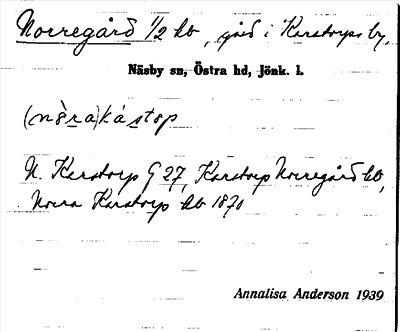 Norregård 1/2 hb, gård i Karstorps by.
Näsby sn, Östra hd, Jönk. l.
(nòra) kástop
N. Karstorp G 27, Karstorp Norregård hb,
Norra Karstorp hb 1870
Annalisa Anderson 1939